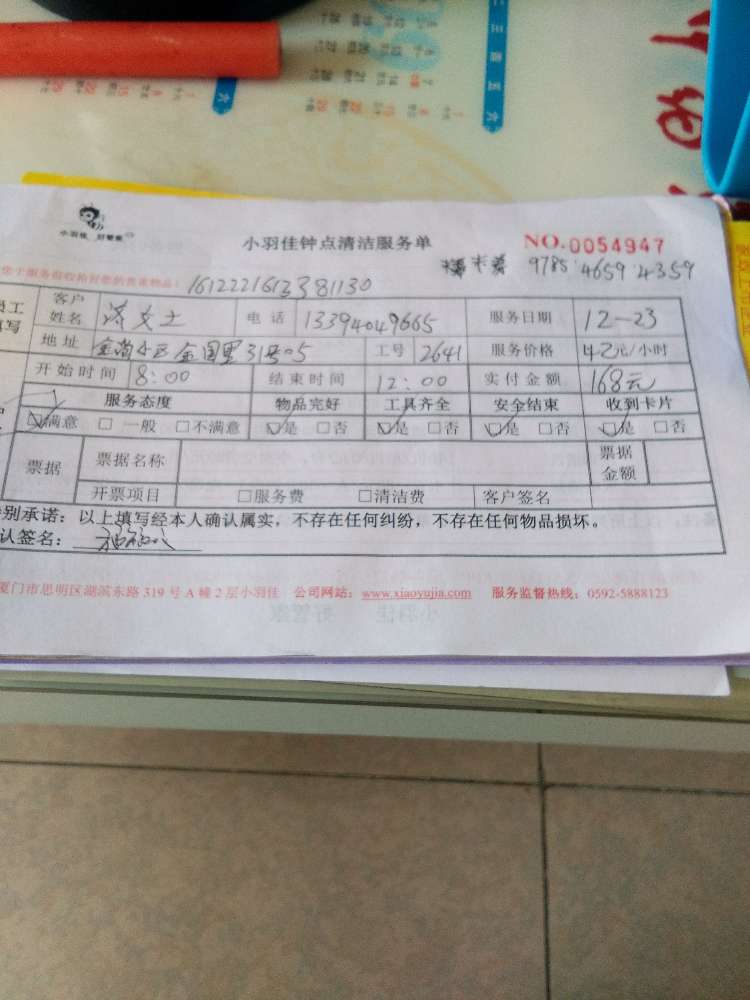 二 三 四 五 六
六
小羽佳 好管家
小羽佳钟点清洁服务单
NO.0054947
9785 4659 4359
1612221613381130
客户姓名 女士 电话 13394049665 服务日期 12-23
地址 金尚小区金国里31号05 工号 2641 服务价格 42元/小时
开始时间 8:00 结束时间 12:00 实付金额 168元
服务态度 物品完好 工具齐全 安全结束 收到卡片
满意 □一般 □不满意 是 □否 是 □否 是 □否 是 □否
票据 票据名称 票据金额
开票项目 □服务费 □清洁费 客户签名
别承诺：以上填写经本人确认属实，不存在任何纠纷，不存在任何物品损坏。
认签名：
厦门市思明区湖滨东路319号A幢2层小羽佳 公司网站：www.xiaoyujia.com 服务监督热线：0592-5888123